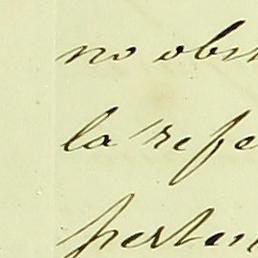 no obs
la refe
perten